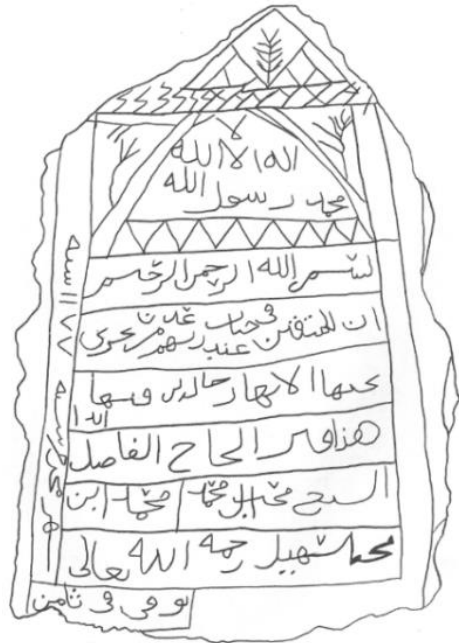 لا
اله الا الله
محمد رسول الله
بسم الله الرحمن الرحيم
ان للمتقين في جنات عدن
عند ربهم تجري
تحتها الانهار خالدين فيها
ابدا
هذا قبر الحاج الفاضل
الشيخ محمد ابن محمد محمد ابن
محمد شهيل رحمه الله تعالى
توفي في ثامن
شهر محرم سنه